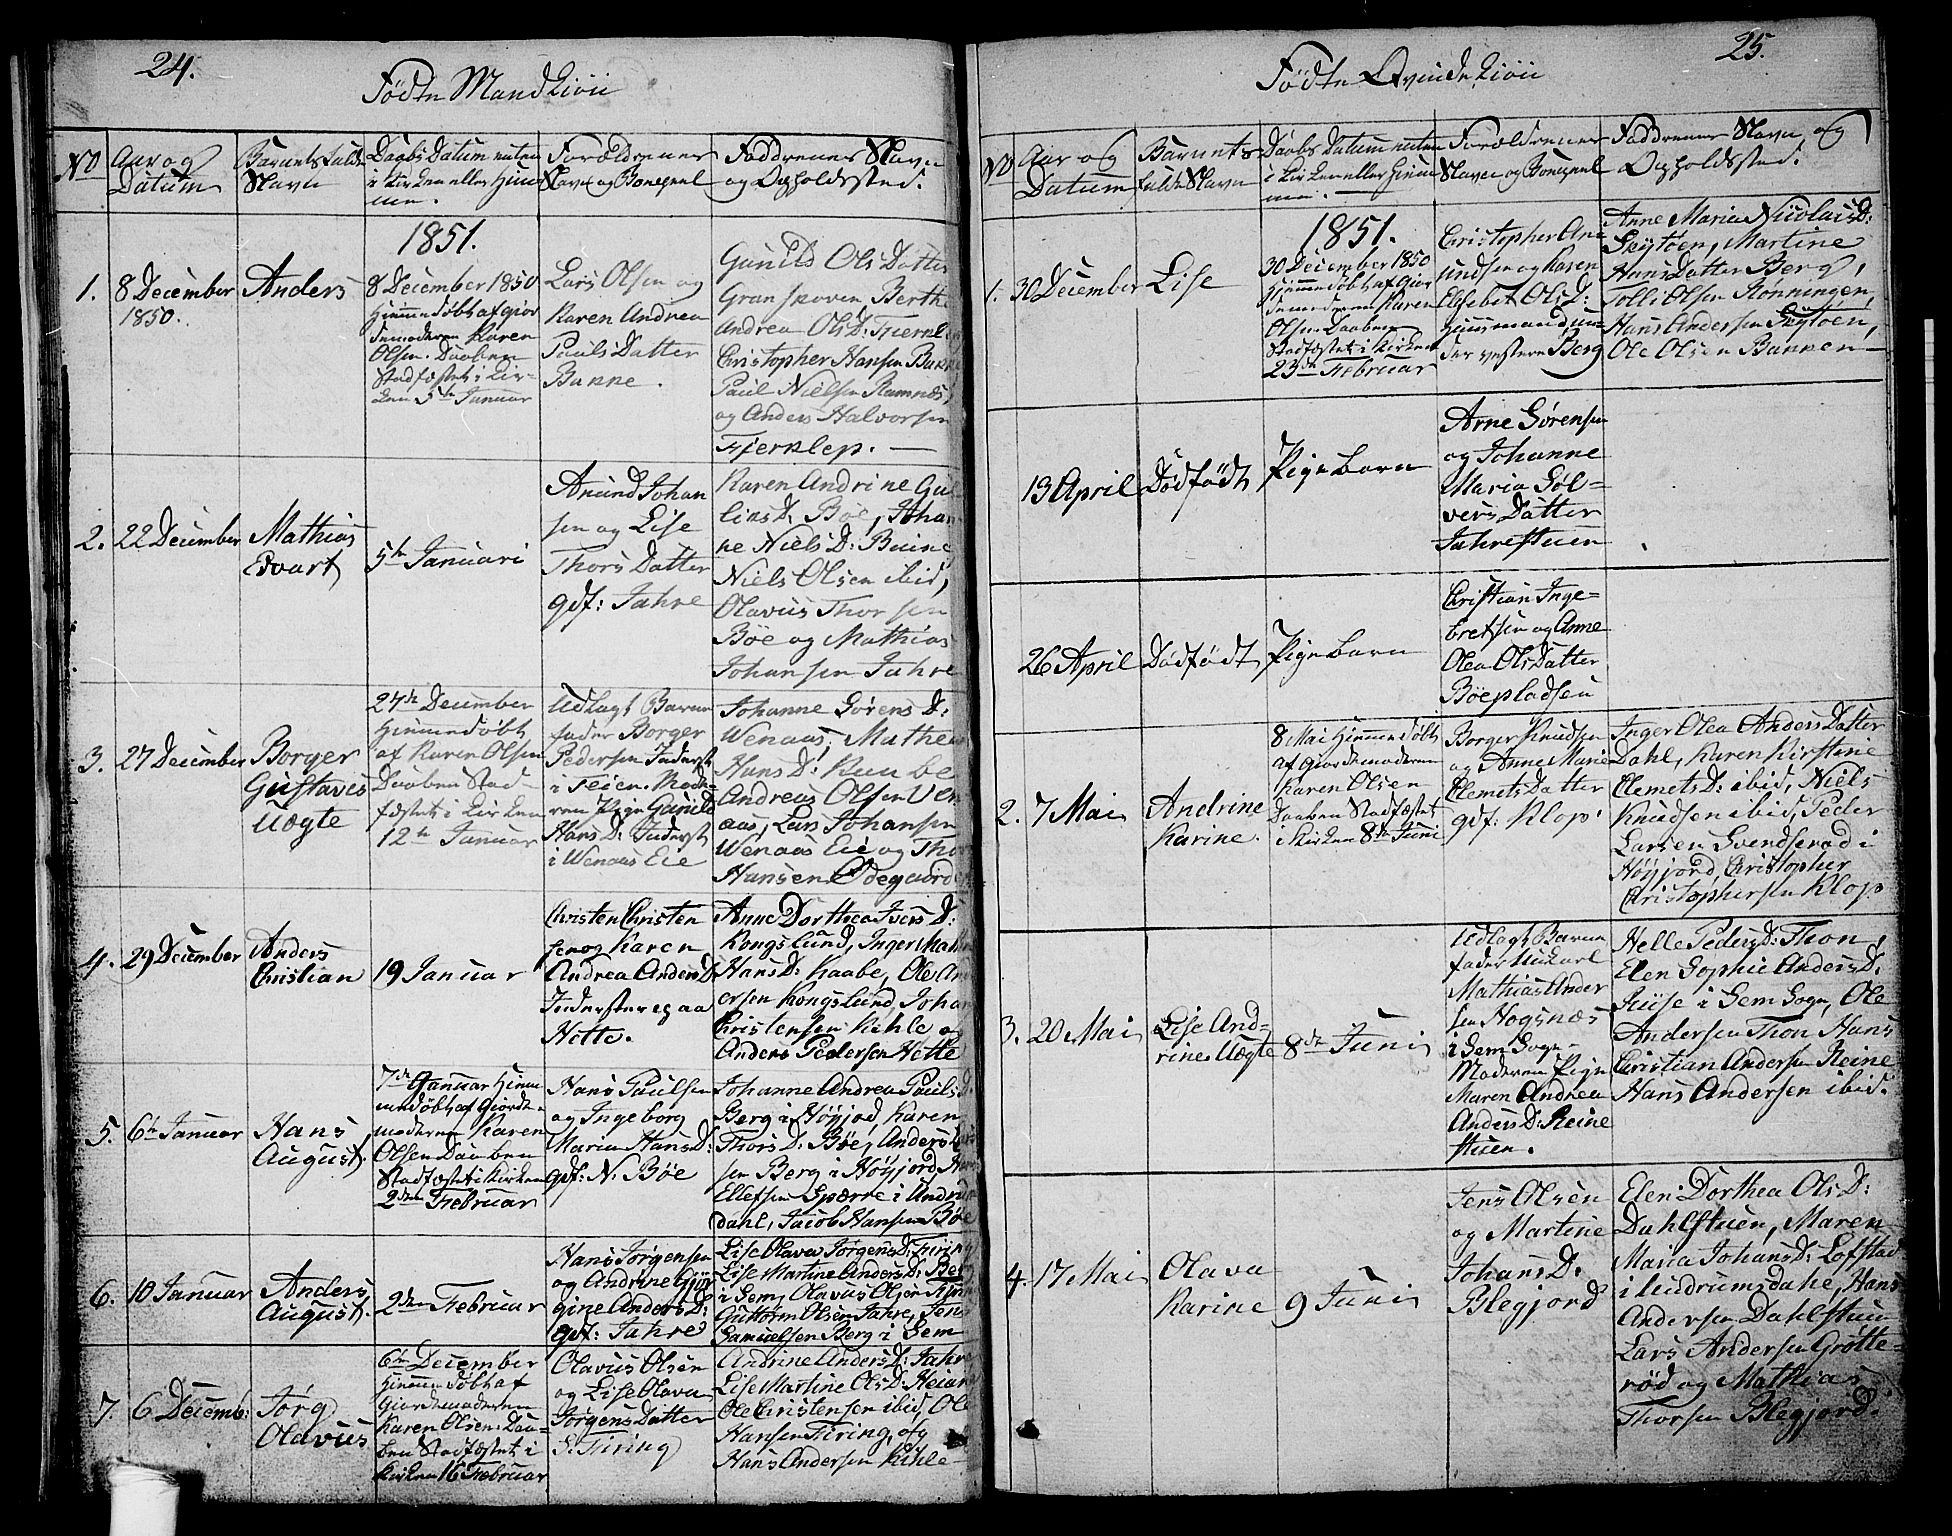 24.
Födte Mandkiön
No
Aar og
Datum
Barnets fulde
Navn
Daabs Datum enten
i Kirken eller Hiem
me.
Forældrenes
Navn og Boepæl
Faddrenes Navn
og Opholdsted.
1851.
1.
8 December
1850.
Anders
8 December 1850
Hiemmedöbt af gior
demoderen Karen
Olsen. Daaben
Stadfæstet i Kir-
ken 5te Januar
Lars Olsen og
Karen Andrea
Pauls Datter
Banne.
Gunild Ols Datter
Andrea Ols D:
Christopher Hansen
Paul Nielsen Ramnæs
og Anders Halvorsen
Fierklep.
2.
22 December
Mathias
Evart
5te Januari
Anund Johan
sen og Lise
Thors Datter
gdf: Jahre
Karen Andrine
lins D: Böe, Johan
ne Niels D:
Niels Olsen ibid,
Olavus Thorsen
Böe og Mathias
Johansen Jahre
3.
27 December
Borger
Gustavus
Uægte
27de December
Hiemmedöbt
af Karen Olsen
Daaben Stad-
fæstet i Kirken
12te Januar
Udlagt Barne
fader Borger
Pedersen Inderst
i Feien. Mode-
ren Pige Gunild
Hans D: Inderst
i Wenaas Eie
Johanne Sörens D:
Wenaas, Mathea
Hans D:
Andreas Olsen Ven
aas, Lars Johansen
Wenaas Eie og Thor
Hansen Ödegaarden
4.
29 December
Anders
Christian
19 Januar
Christen Christen
sen og Karen
Andrea Anders D:
Inderster paa
Hotte.
Anne Dorthea Ivers D:
Kongslund, Inger
Hans D: Kaabe, Ole An
ersen Kongslund, Johan
Christensen Kihle og
Anders Pedersen Hotte
5.
6te Januar
Hans
August.
7de Januar Hiem
medöbt af Giorde-
moderen Karen
Olsen Daaben
Stadfæstet i Kirken
2den Februar
Hans Paulsen
og Ingeborg
Maria Hans D:
gdf: N. Böe
Johanne Andrea Pauls D:
Berg i Höijord, Karen
Thors D: Böe, Anders
sen Berg i Höijord
Ellefsen Sperre i Andebu
dahl, Jacob Hansen Böe
6.
10 Januar
Anders
August.
2den Februar
Hans Jörgensen
og Andrine Giör
gine Anders D:
gdf: Jahre
Lise Olava Jörgens D: Firing
Lise Martine Anders D: Berg
i Sem, Olavus Olsen
Guttorm Olsen Jahre, Jens
Samuelsen Berg i Sem
7.
6 Decemb:
Jörg
Olavus
6te December
Hiemmedöbt af
Giordemoderen
Karen Olsen. Daa-
ben Stadfæstet i
Kirken 16 Februar
Olavus Olsen
og Lise Olava
Jörgens Datter
S. Firing
Andrine Anders D: Jahre
Lise Martine Ols D:
Ole Christensen ibid, Ole
Hansen Firing, og
Hans Andersen Kihle
25.
Födte Qvindekiön
No
Aar og
Datum
Barnets
fulde Navn
Daabs Datum enten
i Kirken eller Hiem
me.
Forældrenes
Navn og Boepæl
Faddrenes Navn og
Opholdsted.
1851.
1.
30 December
Lise
30 December 1850
Hiemmedöbt af Gior
demoderen Karen
Olsen Daaben
Stadfæstet i Kirken
23de Februar
Christopher An-
undsen og Karen
Elisebet Ols D:
Huusmand un-
der vestere Berg
Anne Maria Nicolais D:
Skytöen, Martine
Hans Datter Berg,
Tolli Olsen Rönningen,
Hans Andersen Skytöen,
Ole Olsen Bannen
13 April
Dödfödt
Pigebarn
Arne Sörensen
og Johanne
Maria Söl-
vers Datter
Jahrestuen
26 April
Dödfödt
Pigebarn
Christian Inge-
bretsen og Anne
Olea Ols Datter
Böepladsen
2.
7 Mai
Andrine
Karine.
8 Mai Hiemmedöbt
af Giordemoderen
Karen Olsen
Daaben Stadfæstet
i Kirken 8de Juni
Borger Knudsen
og Anne Marie
Clemets Datter
gdf: Klop.
Inger Olea Anders Datter
Dahl, Karen Kirstine
Clemets D: ibid, Niels
Knudsen ibid, Peder
Larsen Svendseröd i
Höijord, Christopher
Christophersen Klop.
3.
20 Mai
Lise And-
rine Uægte
8de Juni
Udlagt Barne
fader
Mathias Ander
sen Hogsnæs
i Sem Sogn.
Moderen Pige
Maren Andrea
Anders D: Reine
stuen.
Helle Peders D: Thon,
Elen Sophie Anders D:
i Sem Sogn, Ole
Andersen Thon Hans
Christian Andersen Reine
Hans Andersen ibid.
4.
17 Mai
Olava
Karine
9 Juni
Jens Olsen
og Martine
Johans D:
Blegjord
Elen Dorthea Ols D:
Dahlstuen, Maren
Maria Johans D: Lofstad
i Undrumsdahl, Hans
Andersen Dahlstuen
Lars Andersen Grötte-
röd og Mathias
Thorsen Blegjord.